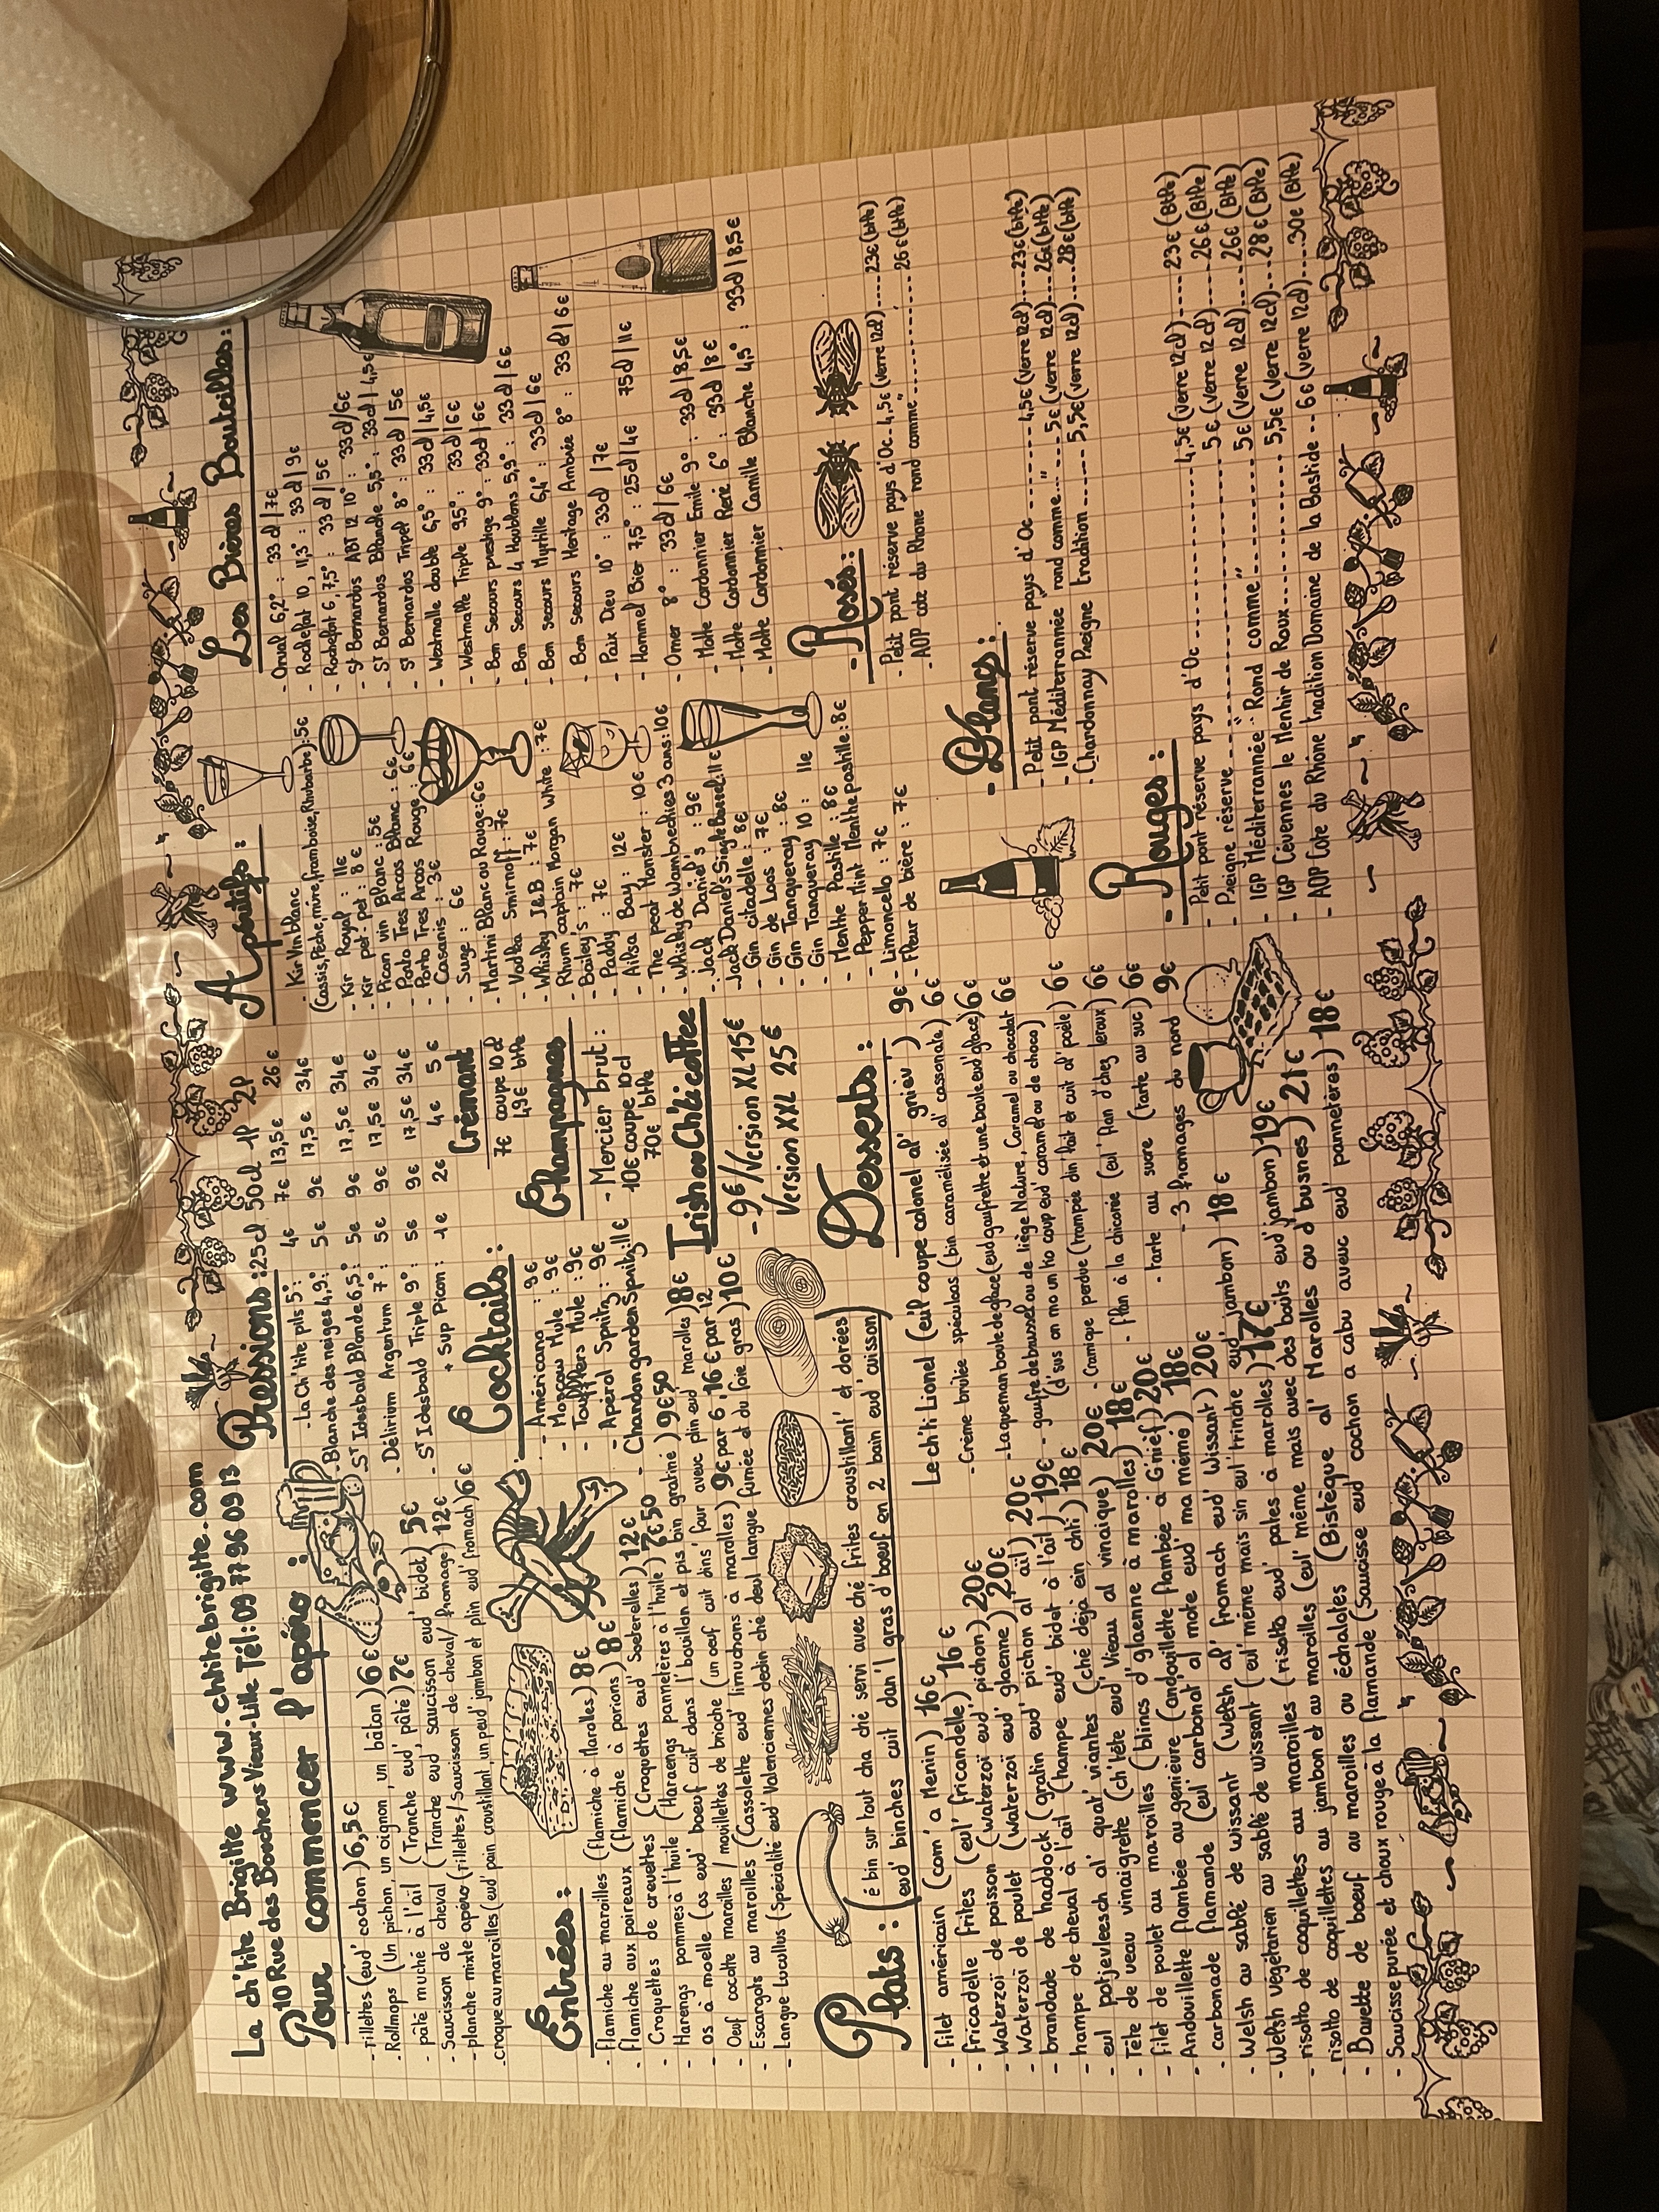 La ch'tite Brigitte www.chtitebrigitte.com
10 Rue des Bouchers Vieux-Lille Tél: 09 77 96 09 13
Pour commencer l'apéro :
- rillettes (eud' cochon) 6,5€
- Rollmops (Un pichon, un oignon, un bâton) 6€
- pâté muché à l'ail (Tranche eud' pâté) 7€
- Saucisson de cheval (Tranche eud' saucisson eud' bidet) 5€
- planche mixte apéro (rillettes/Saucisson de cheval/fromage) 12€
- croque au maroilles (eud' pain croustillant, un peu d' jambon et plin eud' fromach) 6€
Entrées :
- Flamiche au maroilles (flamiche à Marolles) 8€
- Flamiche aux poireaux (flamiche à porions) 8€
- Croquettes de crevettes (Croquettes eud' Soeterelles) 12€
- Harengs pommes à l'huile (Haraengs pannetères à l'huile) 7€50
- os à moelle (os eud' boeuf cuit dans l'bouillon et pis bin gratiné) 9€50
- Oeuf cocotte maroilles / mouillettes de brioche (un oeuf cuit dins' four aveuc plin eud' marolles) 8€
- Escargots au maroilles (Cassolette eud' limuchons à marolles) 9€ par 6, 16€ par 12
- Langue Lucullus (Spécialité eud' Valenciennes dedin ché deul langue fumée et du foie gras) 10€
Plats : (é bin sur tout cha ché servi avec ché frites croustillant' et dorées
(eud' binches cuit dan'l gras d'boeuf en 2 bain eud' cuisson)
- Filet américain (com' a Menin) 16€
- Fricadelle frites (eul' fricandelle) 16€
- Waterzoï de poisson (waterzoï eud' pichon) 20€
- Waterzoï de poulet (waterzoï eud' glaenne) 20€
- brandade de haddock (gratin eud' pichon al' ail) 20€
- hampe de cheval à l'ail (hampe eud' bidet à l'ail) 19€
- eul potjevleesch al' quat' viantes (ché déjà ein chti) 18€
- Tête de veau vinaigrette (ch'tête eud' Vieau al vinaique) 20€
- Filet de poulet au maroilles (blincs d'glaenne à marolles) 18€
- Andouillette flambée au genièvre (andouillette flambée à G'nief) 20€
- carbonade flamande (eul' carbonat al mote eud' ma mémé) 18€
- Welsh au sablé de wissant (Welsh al' fromach eud' Wissant) 20€
- Welsh végétarien au sablé de wissant (eul' même mais sin eul' trinche eud' jambon) 18€
- risotto de coquillettes au maroilles (risotto eud' pates à marolles) 17€
- risotto de coquillettes au jambon et au maroilles (eul' même mais avec des boûts eud' jambon) 19€
- Bavette de boeuf au maroilles ou échalotes (Bistèque al' Marolles ou d'busnes) 21€
- Saucisse purée et choux rouge à la flamande (Saucisse eud cochon a cabu aveuc eud' pannetères) 18€
Pressions : 25cl 50cl 1P 2P
- La Ch'tite pils 5°: 4€ 7€ 13,5€ 26€
- Blanche des neiges 4,9°: 5€ 9€ 17,5€ 34€
- St Idesbald Blonde 6,5°: 5€ 9€ 17,5€ 34€
- Délirium Argentum 7°: 5€ 9€ 17,5€ 34€
- St Idesbald Triple 9°: 5€ 9€ 17,5€ 34€
+ Sup Picon : 1€ 2€ 4€ 5€
Cocktails :
- Américano : 9€
- Moscow Mule : 9€
- Toufflers Mule : 9€
- Apérol Spritz : 9€
- Chandon garden Spritz 11€
Crémant
7€ coupe 10cl
49€ btlle
Champagnes
- Mercier brut :
10€ coupe 10cl
70€ btlle
Irish ou Ch'ti coffee
- 9€ / Version XL 15€
Version XXL 25€
Desserts :
Le ch'ti Lionel (eu'l coupe colonel al' gniev') 9€
- Crème brulée spéculoos (bin caramélisée al' cassonate) 6€
- Laqueman boule de glace (eud gaufrette et une boule eud' glace) 6€
- gaufre de brussel ou de liège Nature, Caramel ou chocolat 6€
(d'sus on mo un tio coup eud' caramel ou de choco)
- Cramique perdue (trempée din'l lait et cuit al' poële) 6€
- flan à la chicorée (eul' flan d'chez leroux) 6€
- tarte au sucre (tarte au suc) 6€
- 3 fromages du nord 9€
Apéritifs :
- Kir Vin blanc
(Cassis, Pêche, mûre, framboise, Rhubarbe) : 5€
- Kir Royal : 11€
- Kir pet-pet : 8€
- Picon vin Blanc : 5€
- Porto Tres Arcos Blanc : 6€
- Porto Tres Arcos Rouge : 6€
- Casanis : 3€
- Suze : 6€
- Martini Blanc ou Rouge : 6€
- Vodka Smirnoff : 7€
- Whisky J&B : 7€
- Rhum captain Morgan White : 7€
- Bailey's : 7€
- Paddy : 7€
- Ailsa Bay : 12€
- The peat Monster : 10€
- Whisky de Wambrechies 3 ans : 10€
- Jack Daniel's : 9€
- Jack Daniel's Single Barrel : 11€
- Gin citadelle : 8€
- Gin de Loos : 7€
- Gin Tanqueray : 8€
- Gin Tanqueray 10 : 11€
- Menthe Pastille : 8€
- Pepper Mint Menthe pastille : 8€
- Limoncello : 7€
- Fleur de bière : 7€
Les Bières Bouteilles :
- Orval 6,2° : 33cl | 7€
- Rochefort 10, 11,3° : 33cl | 9€
- Rochefort 6, 7,5° : 33cl | 5€
- St Bernardus ABT 12 10° : 33cl | 6€
- St Bernardus Blanche 5,5° : 33cl | 4,5€
- St Bernardus Tripel 8° : 33cl | 5€
- Westmalle double 6,5° : 33cl | 4,5€
- Westmalle Triple 9,5° : 33cl | 6€
- Bon Secours prestige 9° : 33cl | 6€
- Bon Secours 4 Houblons 5,9° : 33cl | 6€
- Bon secours Myrtille 6,4° : 33cl | 6€
- Bon secours Héritage Ambrée 8° : 33cl | 6€
- Paix Dieu 10° : 33cl | 7€
- Hommel Bier 7,5° : 25cl | 4€ 75cl | 11€
- Omer 8° : 33cl | 6€
- Motte Cordonnier Emile 9° : 33cl | 8,5€
- Motte Cordonnier René 6° : 33cl | 8€
- Motte Cordonnier Camille Blanche 4,5° : 33cl | 8,5€
- Rosés :
- Petit pont réserve pays d'Oc - 4,5€ (verre 12cl) ---- 23€ (btlle)
- AOP cote du Rhone rond comme" ---- 26€ (btlle)
- Blancs :
- Petit pont réserve pays d'Oc ---- 4,5€ (verre 12cl) ---- 23€ (btlle)
- IGP Méditerrannée rond comme..." ---- 5€ (verre 12cl) ---- 26€ (btlle)
- Chardonnay Preigne tradition ---- 5,5€ (verre 12cl) ---- 28€ (btlle)
- Rouges :
- Petit pont réserve pays d'Oc ---- 4,5€ (verre 12cl) ---- 23€ (Btlle)
- Preigne réserve ---- 5€ (verre 12cl) ---- 26€ (Btlle)
- IGP Méditerrannée "Rond comme" ---- 5€ (verre 12cl) ---- 26€ (Btlle)
- IGP Cévennes le Menhir de Roux ---- 5,5€ (verre 12cl) ---- 28€ (Btlle)
- AOP Cote du Rhône tradition Domaine de la Bastide -- 6€ (verre 12cl) ---- 30€ (Btlle)